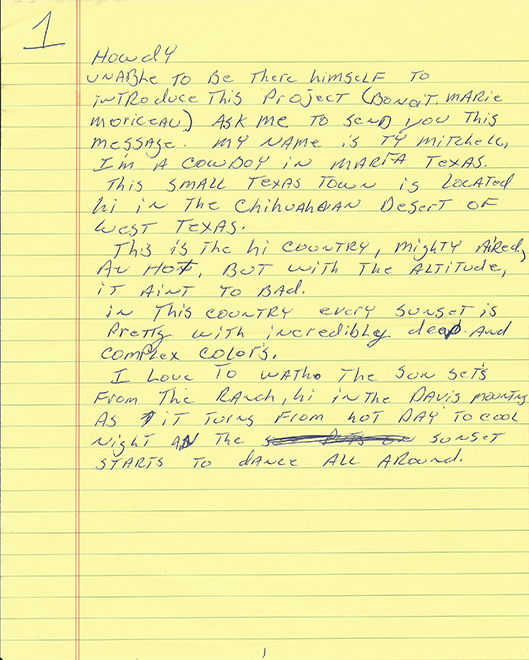 1
Howdy
UNABLE TO Be There himSELF TO
iNTRoduce This ProjecT (BONAT. MARie
moriceAU) ASK me TO SeND you This
messAge. my NAme is TY miTcheLL,
I'm A COWBOY iN mARFA TexAS.
This smALL TexAS Town is LocATed
hi iN The ChihuAhuAN DeserT OF
wesT TexAS.
This is The hi couNTRY, mighTY AiRed,
AN HOT, BuT wiTh The ALTiTude,
iT AiNT TO BAd.
iN This couNTRY every suNseT is
PreTTy wiTh iNcredibly deep. ANd
compLex coLor's.
I Love To WATho The SuN SeT's
From The RANch, hi iN The DAvis mouNTNS
AS iT TurNS From hoT DAY To cooL
Night AN The suNseT
STARTS To dANce ALL ArouNd.
1